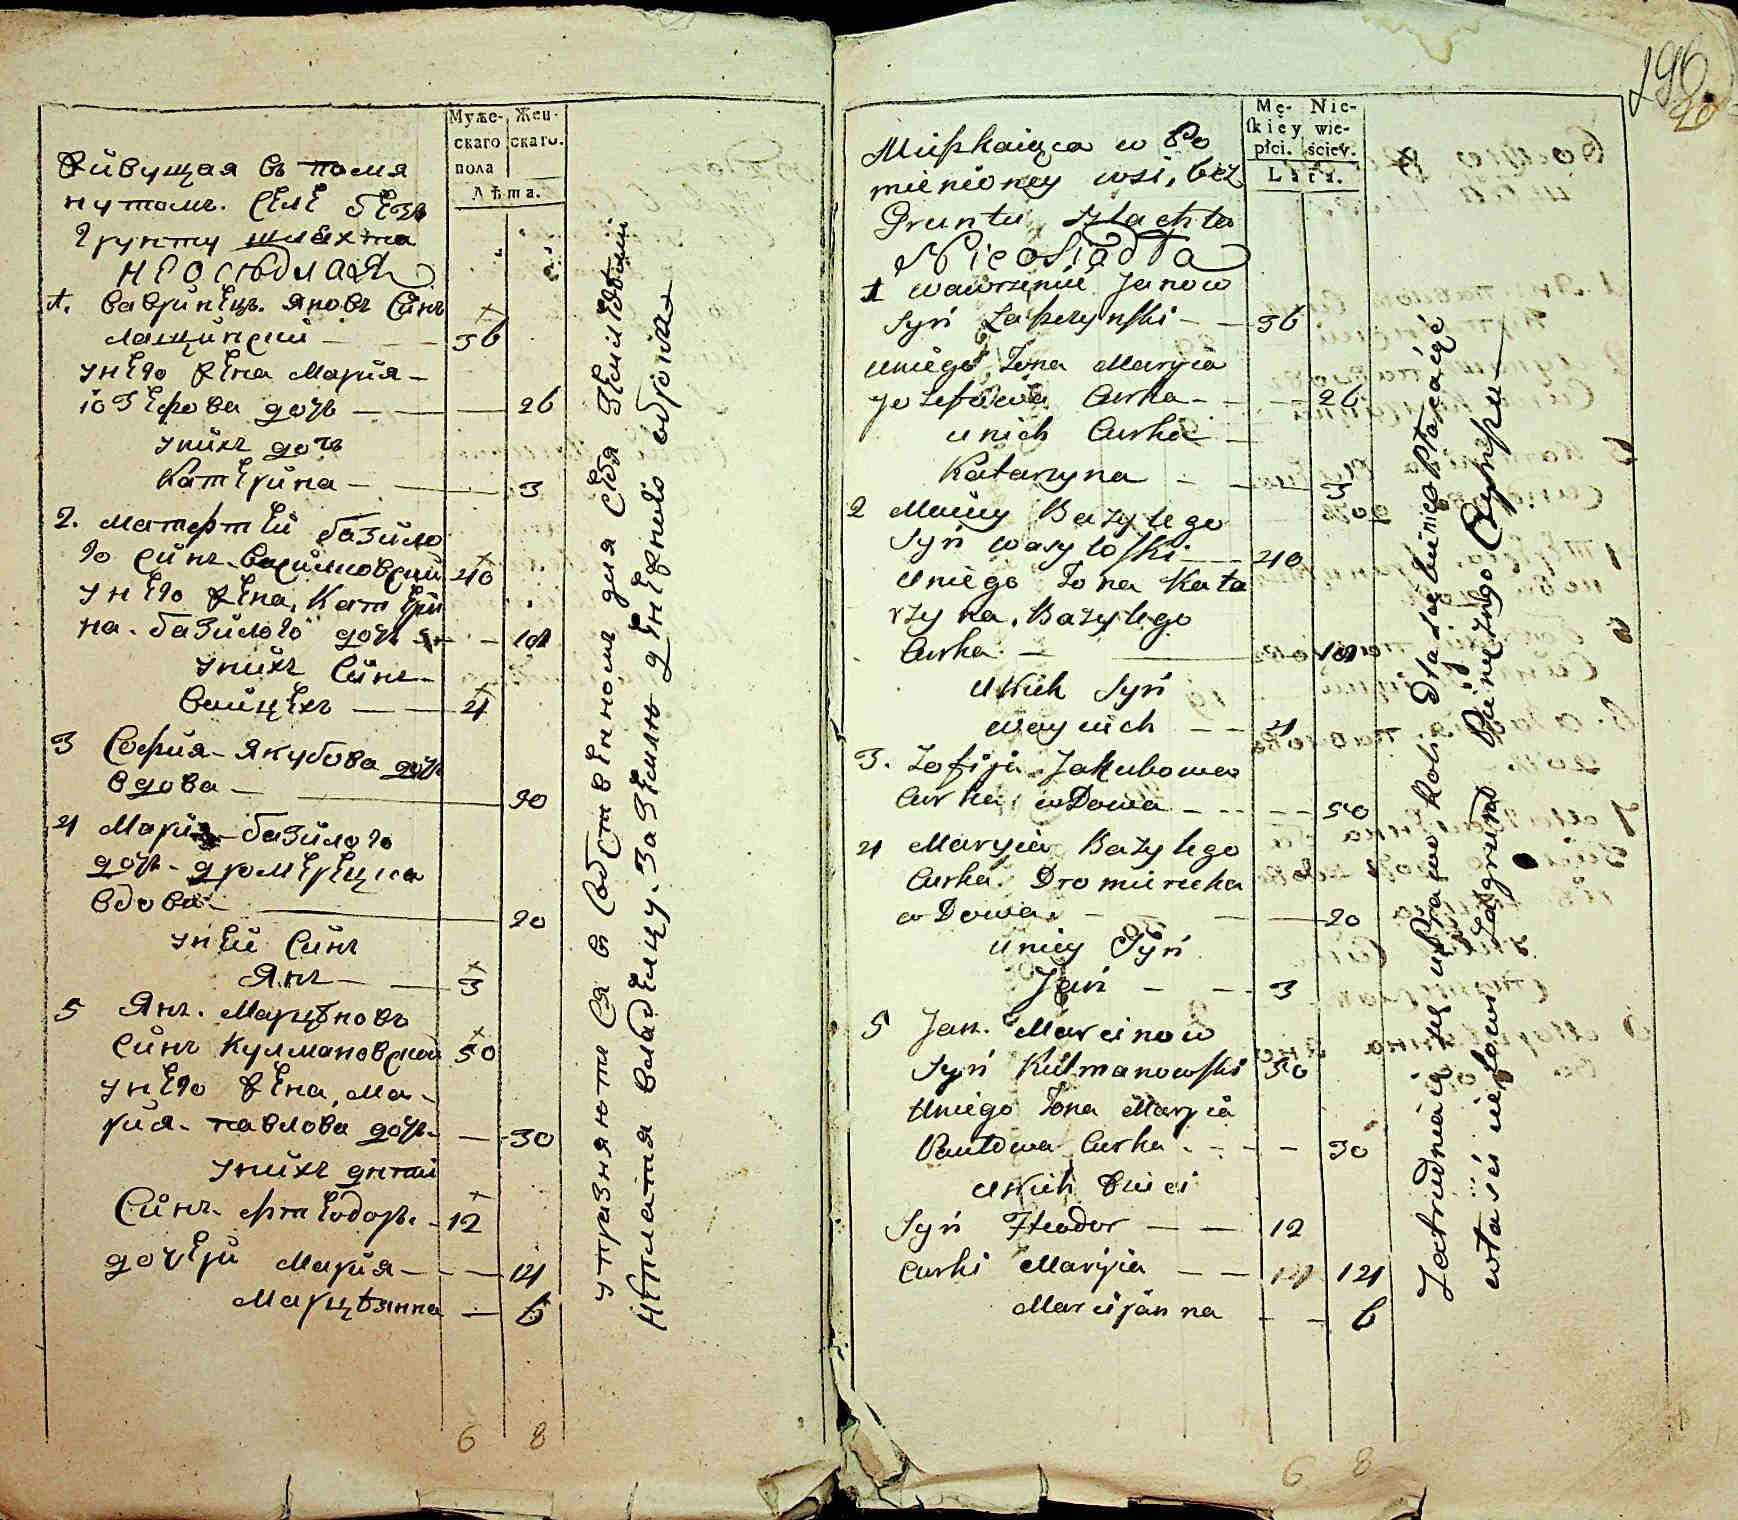 Муже-
скаго
пола
Жен-
скаго.
Лѣта.
Живущая въ помя
нутомъ. Селе безъ
Грунту шляхта
неоседлая
1. Вавринецъ. Яновъ Синъ
Лащинский — 36
у него жена Мария —
іозефова дочь — 26
у нихъ дочъ
Катерина — 3
2. Матефтей базило
го Синъ. Василковский 40
у него жена. Катери
на. базилого дочъ —
у нихъ Синъ —
Войцехъ — 4
3 София — Якубова дочь
вдова —
4 Мария — базилого
дочь — дромерецка
вдова — 20
у ней Синъ
Янъ — 3
5 Янъ. Марцѣновъ
Синъ Кулмановский 50
у него жена, Ма-
рия — павлова дочь — 30
у нихъ дети
Синъ — фтеодоръ — 12
дочери Мария — 14
Марцѣянна — 6
6 8
упразняются в Собственномъ для себя Земледелии
неплатя владелцу. За землю денежного оброка
196
20
Mę-
ſkiey
płci.
Nie-
wie-
ściey.
Lata.
Miſzkaiąca w Po
mienioney wsi, bez
Gruntu szlachta
Nieosiadła
1 Wawrzeniec Janow
Syn Laszczynſki — 36
u niego Żona Maryia
Jozefowa Curka — 26
u nich Curka
Katarzyna — 3
2 Maciey Bazylego
Syn Wasylo ſki — 40
u niego Żona Kata
rzyna. Bazylego
Curka —
u Nich Syn
Woyciech — 4
3. Zofija Jakubowa
Curka, wdowa — 50
4 Maryia Bazylego
Curka. Dromirecka
wdowa. — 20
u niey Syn
Jan — 3
5 Jan. Marcinow
Syn Kulmanowſki 50
u niego Żona Maryia
Pawłowa Curka — 30
u Nich Dzieci
Syn Fteodor — 12
Curki Maryia — 14 14
Marcijanna — 6
6 8
Zatrudniaią się uprawą Roli Dla siebie nie płacąc
właścicielowi za grunt Pieniężnego Czynſzu